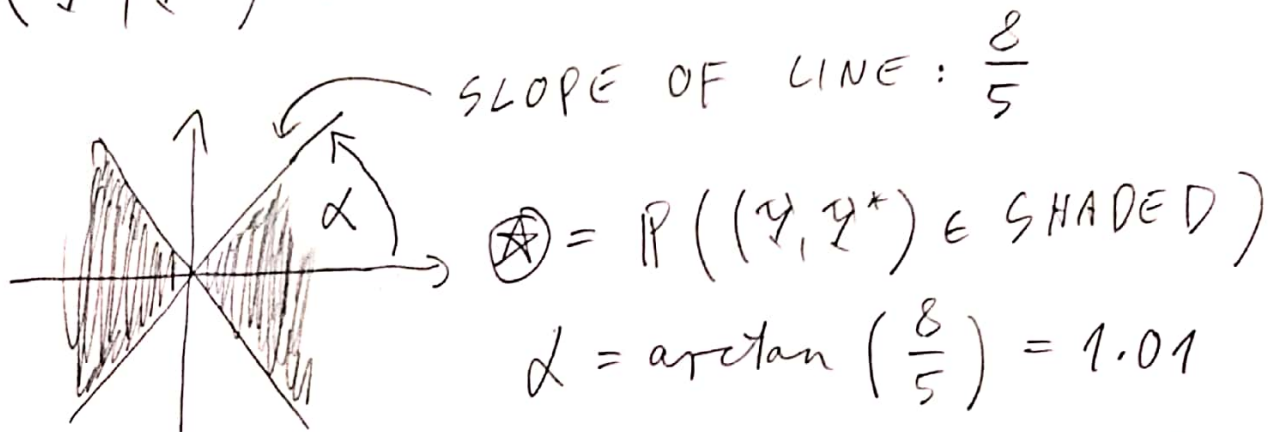 SLOPE OF LINE : 8/5
α
⍟ = ℙ((Y, Y*) ∈ SHADED)
α = arctan (8/5) = 1.01